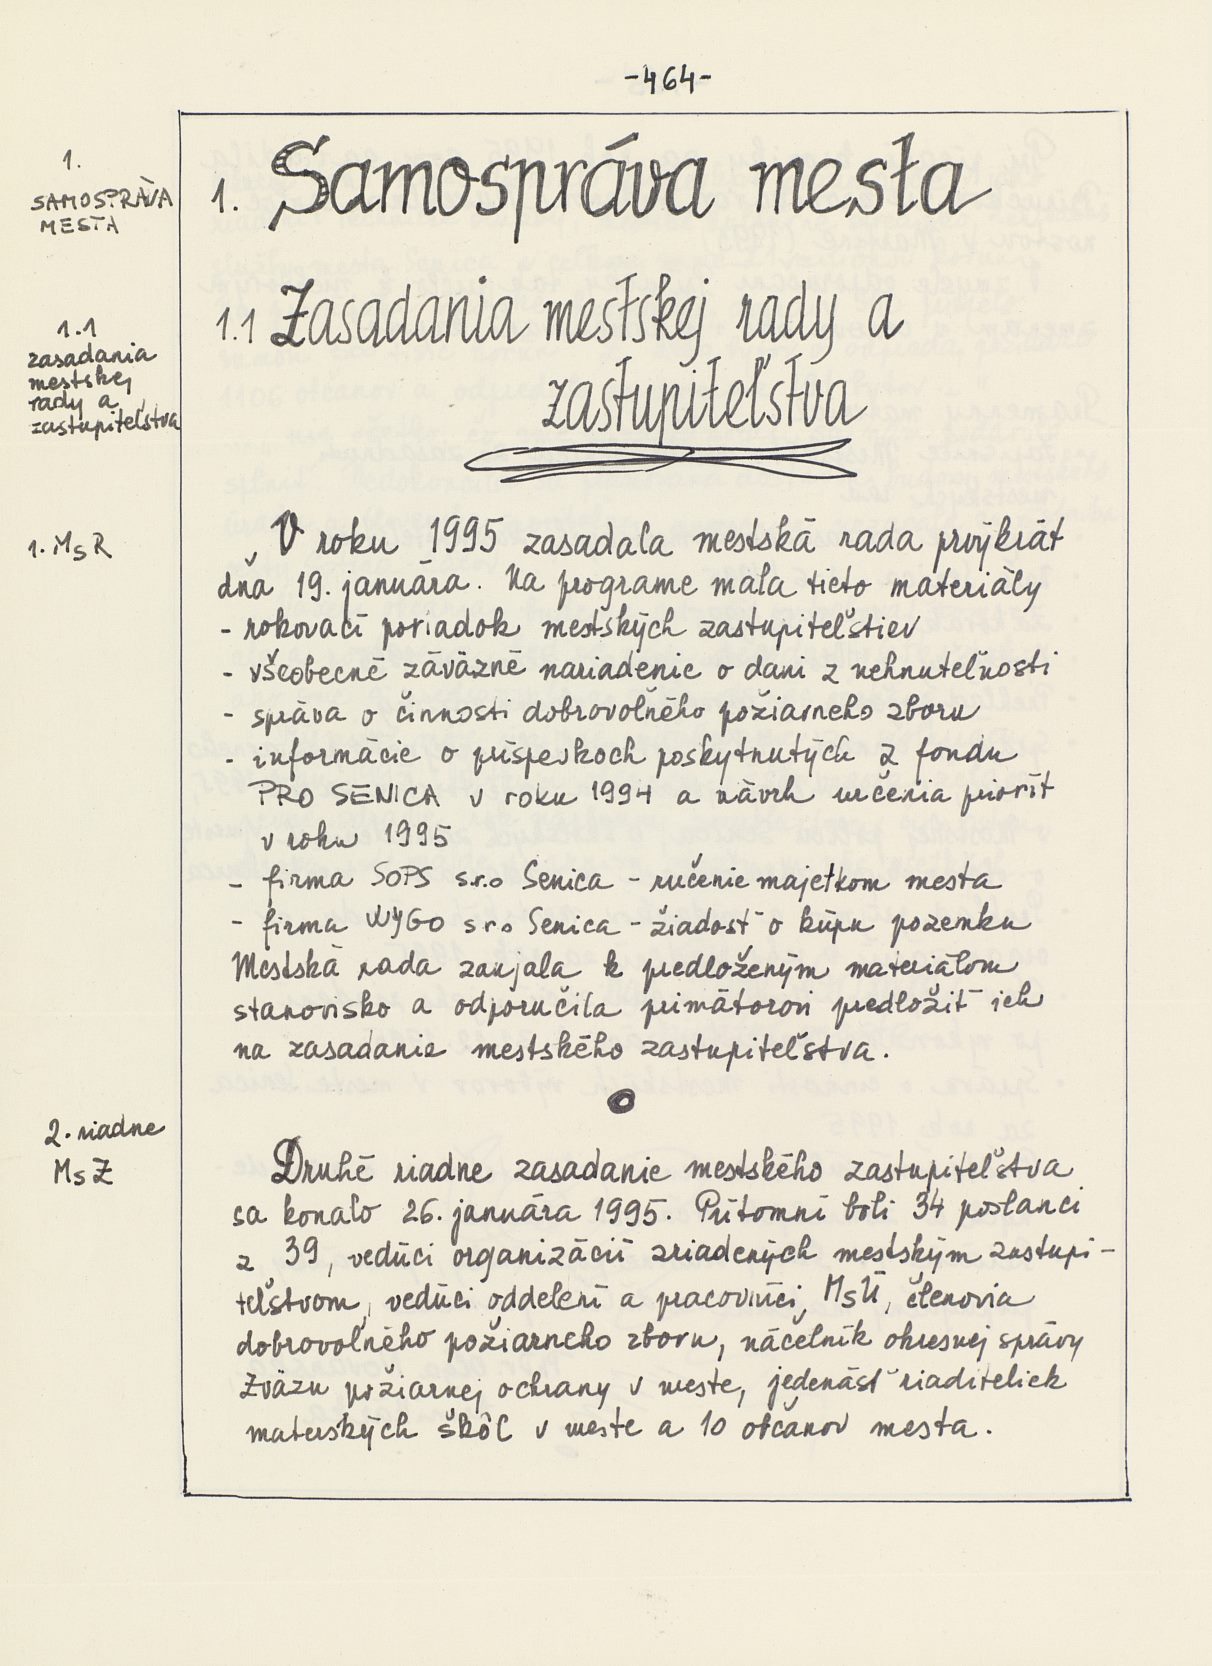 -464-
1.
SAMOSPRÁVA
MESTA
1. Samospráva mesta
1.1
zasadania
mestskej
rady a
zastupiteľstva
1.1 Zasadania mestskej rady a
zastupiteľstva
1. MsR
V roku 1995 zasadala mestská rada prvýkrát
dňa 19. januára. Na programe mala tieto materiály
- rokovací poriadok mestských zastupiteľstiev
- všeobecné záväzné nariadenie o dani z nehnuteľnosti
- správa o činnosti dobrovoľného požiarneho zboru
- informácie o príspevkoch poskytnutých z fondu
PRO SENICA v roku 1994 a návrh určenia priorít
v roku 1995
- firma SOPS s.r.o Senica - ručenie majetkom mesta
- firma WYGO s r o Senica - žiadosť o kúpu pozemku
Mestská rada zaujala k predloženým materiálom
stanovisko a odporučila primátorovi predložiť ich
na zasadanie mestského zastupiteľstva.
2. riadne
MsZ
Druhé riadne zasadanie mestského zastupiteľstva
sa konalo 26. januára 1995. Prítomní boli 34 poslanci
z 39, vedúci organizácií zriadených mestským zastupi-
teľstvom, vedúci oddelení a pracovníci MsÚ, členovia
dobrovoľného požiarneho zboru, náčelník okresnej správy
Zväzu požiarnej ochrany v meste, jedenásť riaditeliek
materských škôl v meste a 10 občanov mesta.